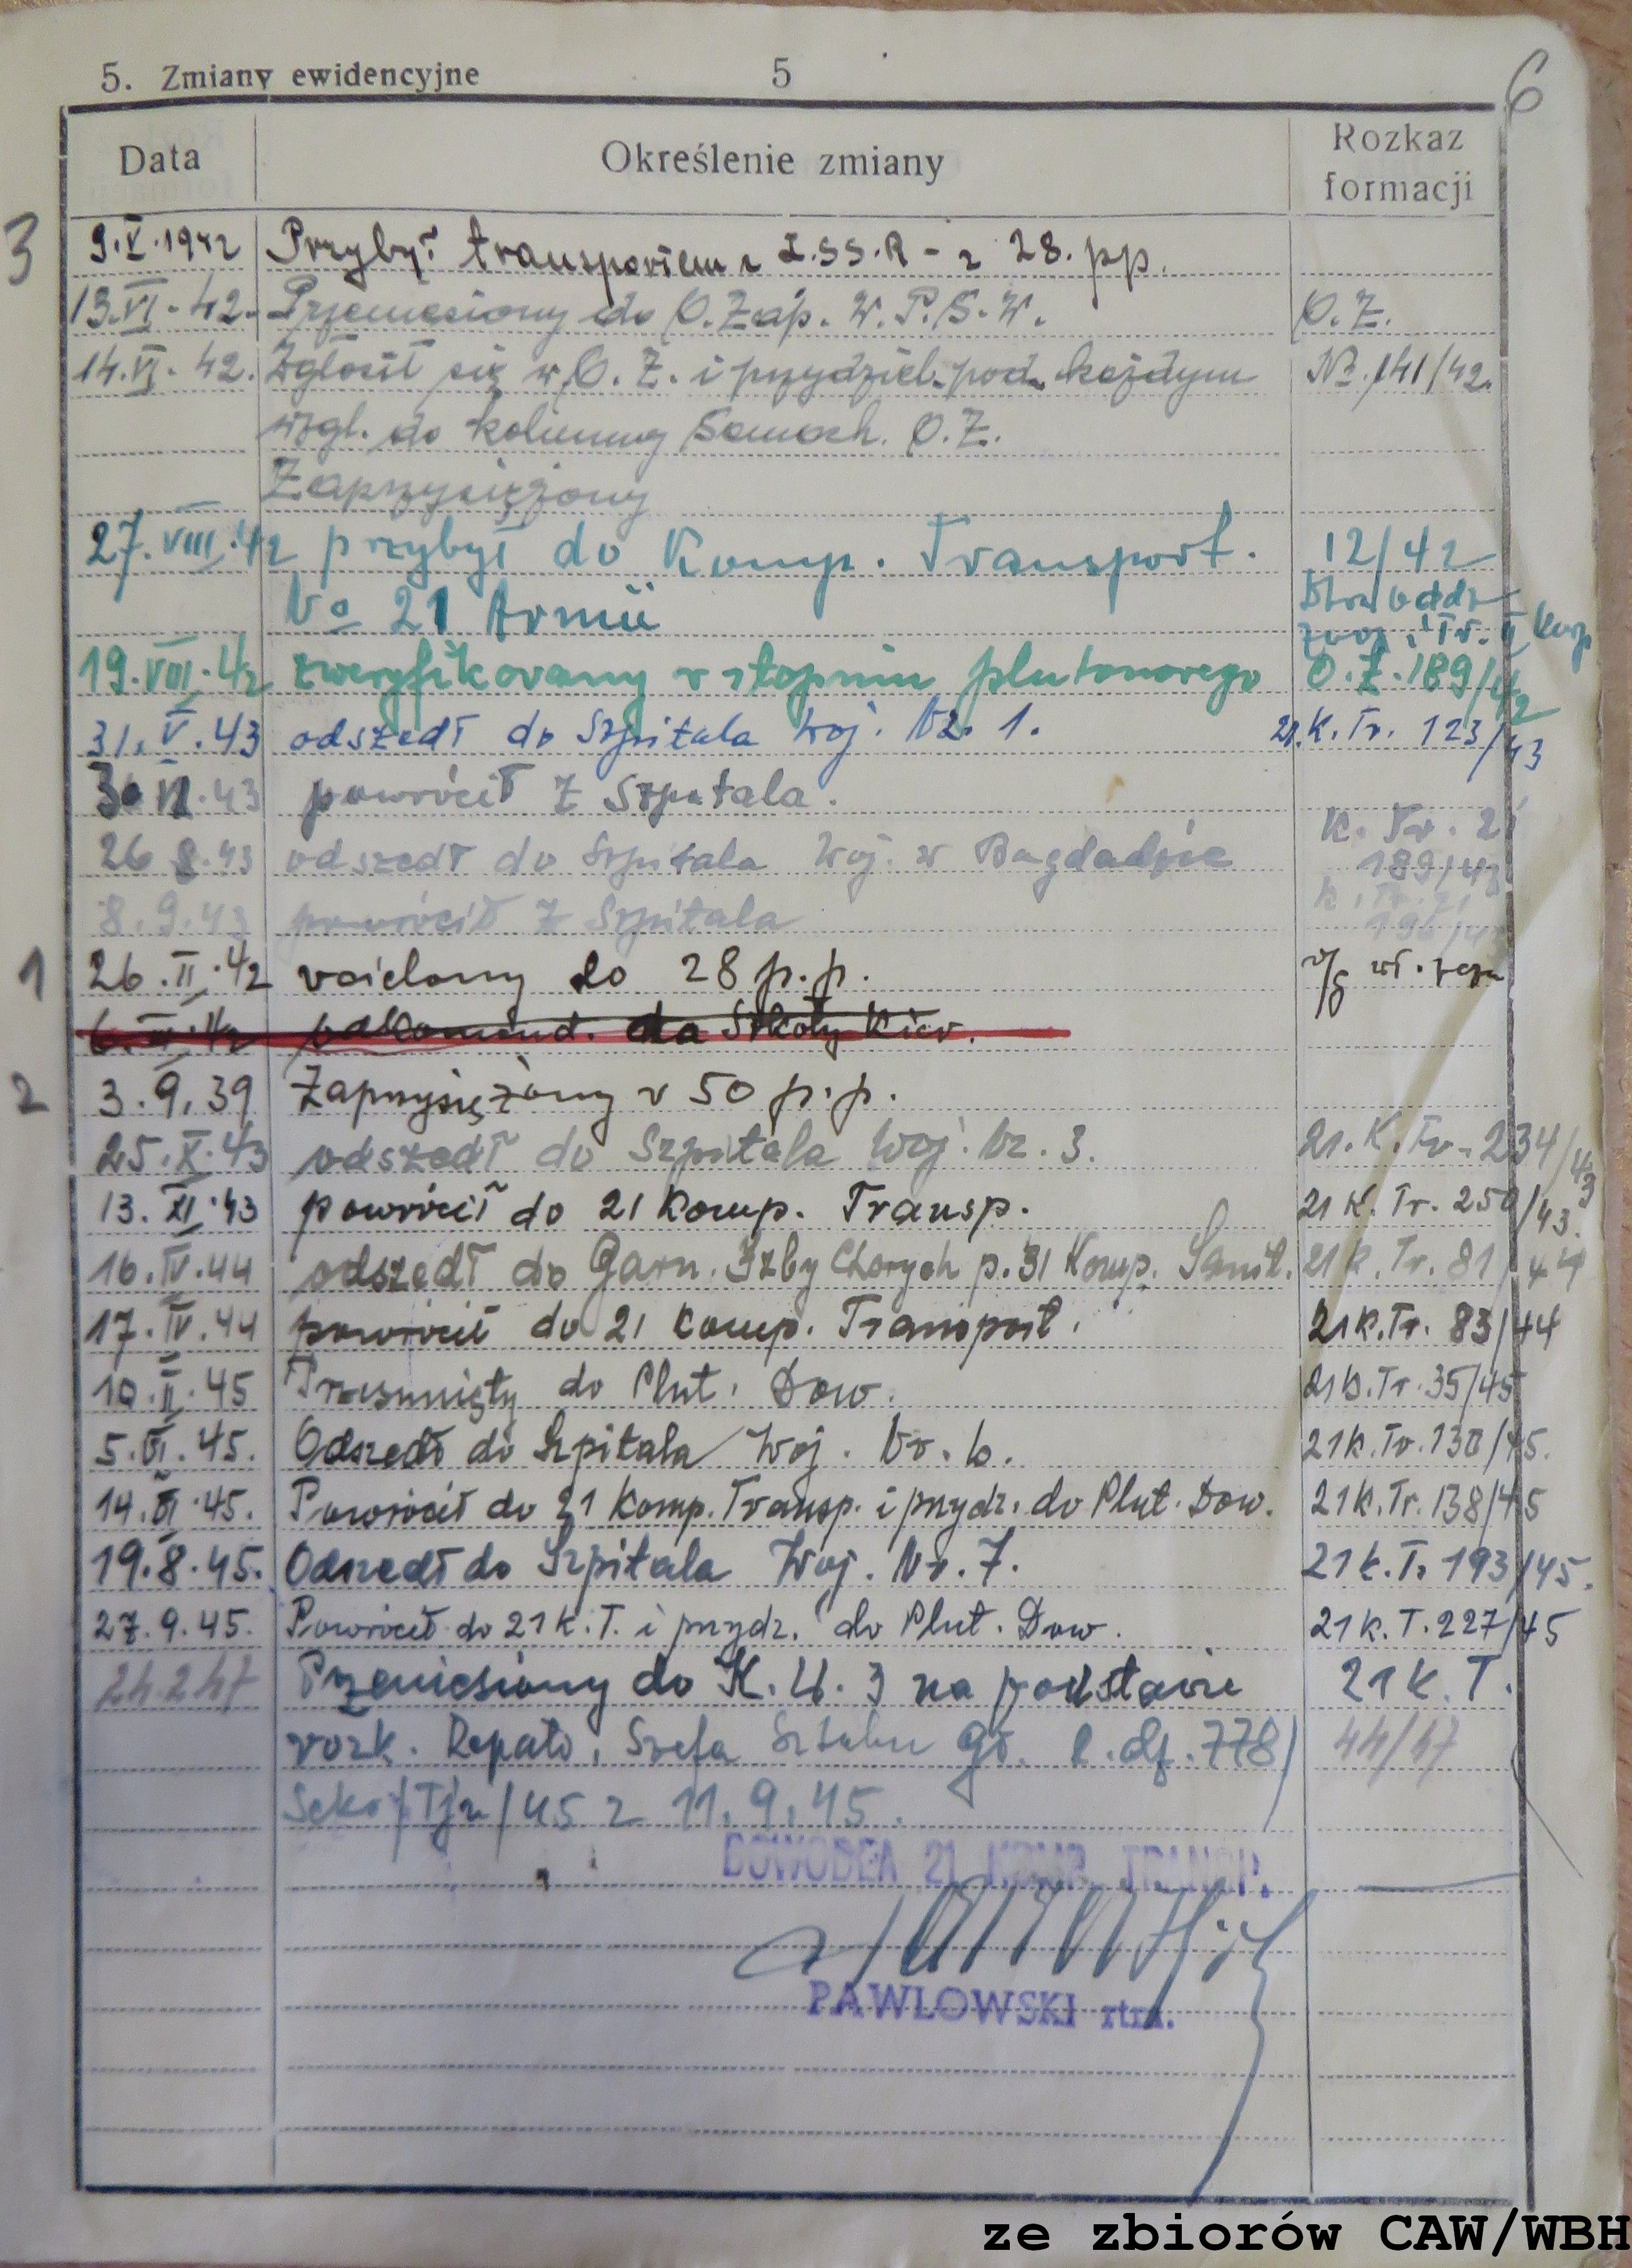 5. Zmiany ewidencyjne 5 6
Data Określenie zmiany Rozkaz formacji
3 9.V.1942 Przybył transportem z Z.S.S.R - z 28. pp.
13.VI.42. Przeniesiony do O.Zap. W.P.Ś.W. O.Z.
14.VI.42. Zgłosił się w O.Z. i przydziel. pod każdym No. 141/42.
wzgl. do kolumny Samoch. O.Z.
Zaprzysiężony
27.VIII.42 przybył do Komp. Transport. 12/42
No 21 Armii
19.VIII.42 zweryfikowany w stopniu plutonowego O.Z. 189/42
31.V.43 odszedł do Szpitala Woj. Nr. 1. 21.K.Tr. 123/43
30 VI.43 powrócił z Szpitala.
26 8.43 odszedł do Szpitala Woj. w Bagdadzie K.Tr. 21 189/43
8.9.43 powrócił z Szpitala K.Tr. 21 196/43
1 26.II.42 wcielony do 28 p.p.
6.III.42 odkomend. do Szkoły Kier.
2 3.9.39 Zaprzysiężony w 50 p.p.
25.X.43 odszedł do Szpitala Woj. Nr. 3. 21.K.Tr. 234/43
13.XI.43 powrócił do 21 Komp. Transp. 21 K.Tr. 250/43.
16.IV.44 odszedł do Garn. Izby Chorych p. 31 Komp. Sanit. 21 K.Tr. 81/44
17.IV.44 powrócił do 21 Komp. Transport. 21 K.Tr. 83/44
10.II.45 Przesunięty do Plut. Dow. 21 K.Tr. 35/45
5.VI.45. Odszedł do Szpitala Woj. Nr. 6. 21 K.Tr. 130/45.
14.VI.45. Powrócił do 21 Komp. Transp. i przydz. do Plut. Dow. 21 K.Tr. 138/45
19.8.45. Odszedł do Szpitala Woj. Nr. 7. 21 K.Tr 193/45.
27.9.45. Powrócił do 21 K.T. i przydz. do Plut. Dow. 21 K.T. 227/45
24.2.47 Przeniesiony do K.U. 3 na podstawie 21 K.T.
rozk. Szefa Sztabu Gł. l.dz. 778/ 44/47
/Tjn/45 z 11.9.45.
DOWÓDCA 21 KOMP. TRANSP.
PAWLOWSKI rtm.
ze zbiorów CAW/WBH